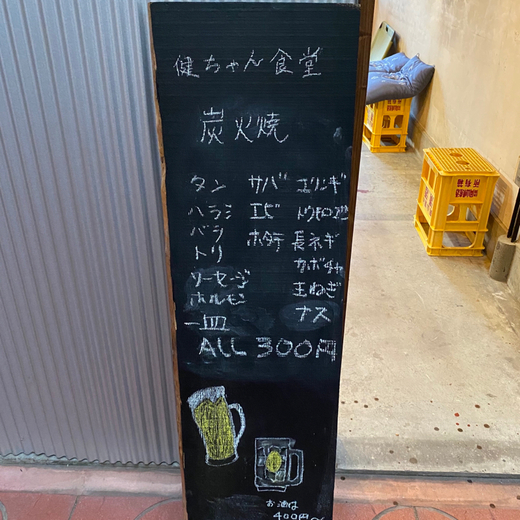 健ちゃん食堂
炭火焼
タン サバ エリンギ
ハラミ エビ トウモロコシ
バラ ホタテ 長ネギ
トリ カボチャ
ソーセージ 玉ねぎ
ホルモン ナス
一皿
ALL 300円
お酒は
400円〜